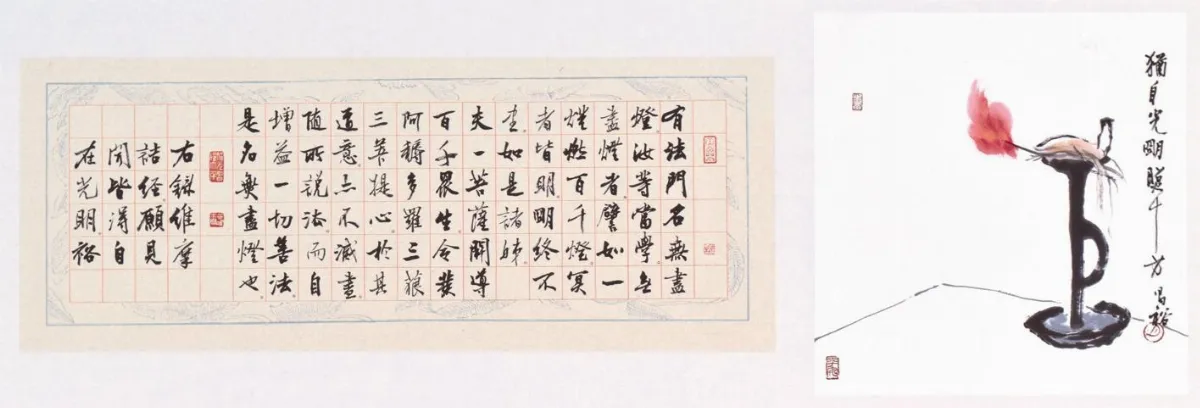 有法門名無盡
燈汝等當學无
盡燈者譬如一
燈燃百千燈冥
者皆明明終不
盡如是諸姊
夫一菩薩開導
百千眾生令發
阿耨多羅三藐
三菩提心於其
道意亦不滅盡
隨所說法而自
增益一切善法
是名無盡燈也
右錄維摩
詰經願見
聞皆得自
在光明裕
猶自光明照十方
昌裕